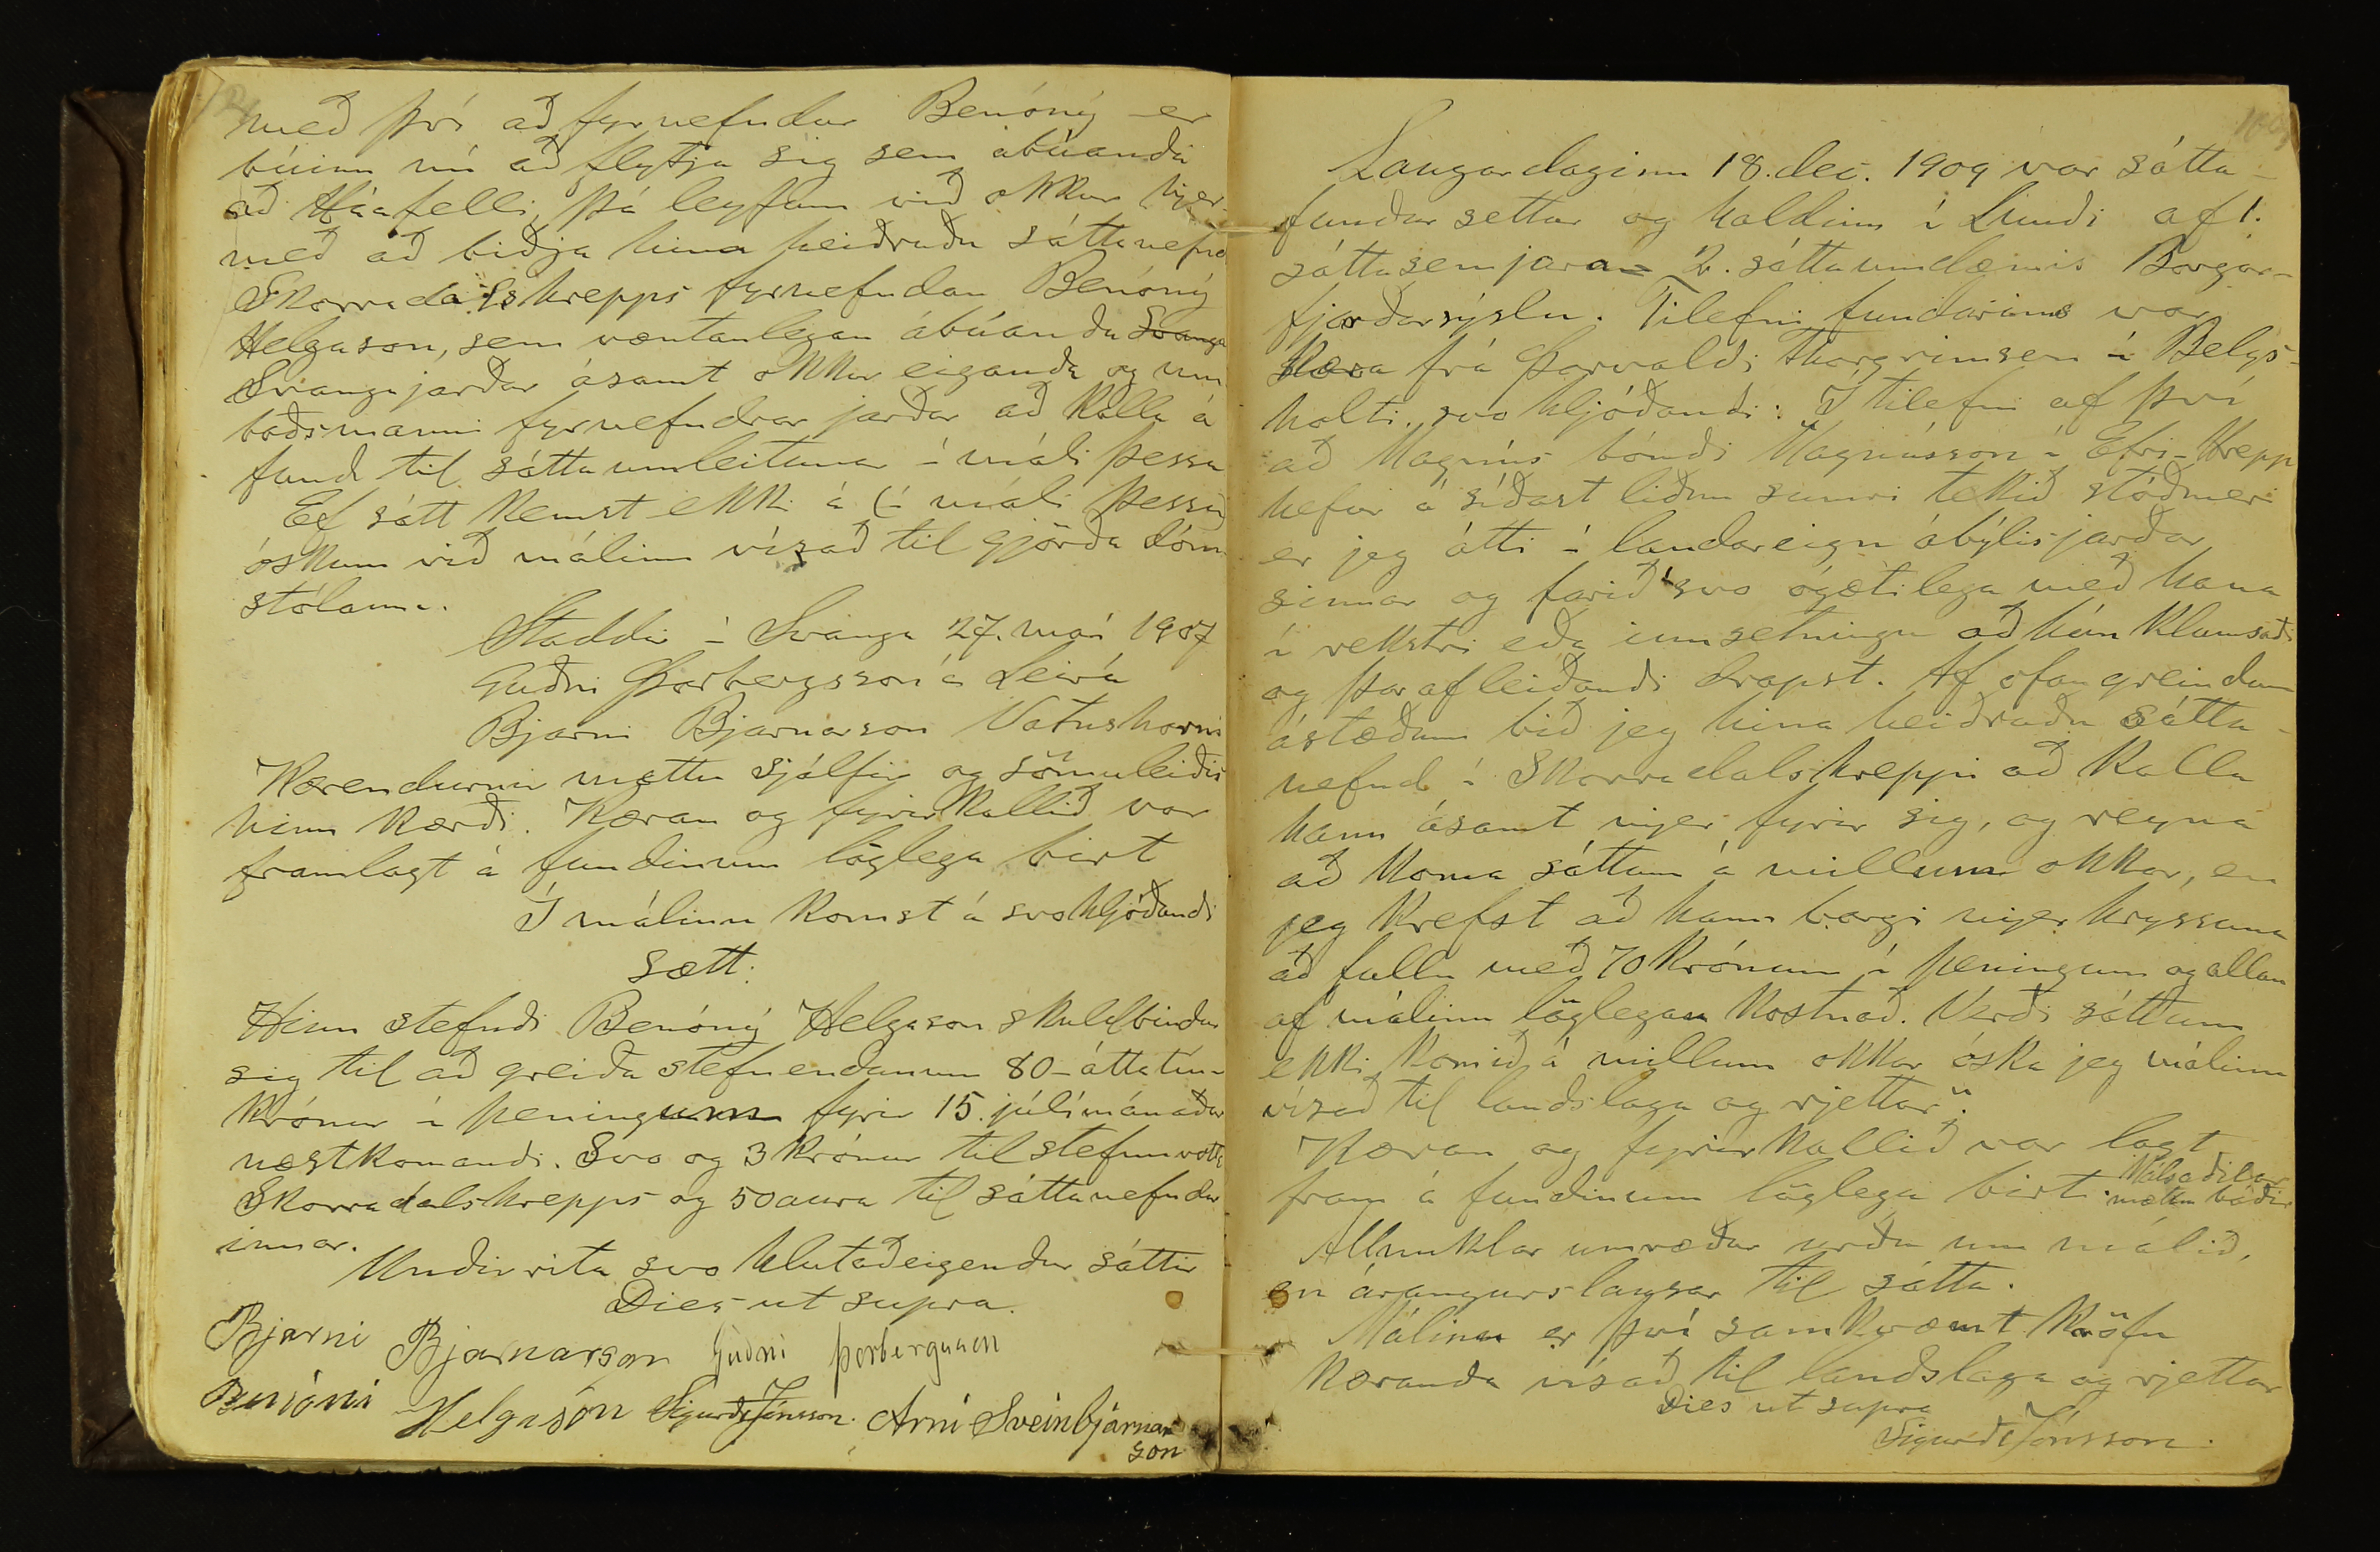 með því að fyrnefndur Benóný er
búinn nú að flytja sig sem ábúandi
að Háafelli, þá leyfum við okkur hjer
með að biðja hina heiðruðu sáttanefnd
Skorradalshrepps fyrnefndan Benóný
Helgason, sem væntanlegan ábúanda Svanga
Svangajarðar ásamt okkur eiganda og um
boðsmanni fyrnefndrar jarðar að kalla á
fund til sáttaumleitunar í máli þessu
Ef sátt kemst ekki á (í máli þessu)
óskum við málinu vísað til gjörða dóm
stólanna.
Staddir í Svanga 27. maí 1907
Guðni Þorbergsson á Leirá
Bjarni Bjarnarson Vatnshorni
Kærendurnir mættu sjálfir og sömuleiðis
hinn kærði. Kæran og fyrirkallið var
framlagt á fundinum löglega birt
Í málinu komst á svohljóðandi
sætt:
Hinn stefndi Benóný Helgason skuldbindur
sig til að greiða stefnendunum 80 - áttatíu -
krónur í peningum fyrir 15. júlímánaðar
næstkomandi. Svo og 3 krónur til stefnuvotta
Skorradalshrepps og 50 aura til sáttanefndar
innar.
Undirrita svo hlutaðeigendur sáttir
Dies ut supra.
Bjarni Bjarnarson Guðni Þorbergsson
Benóní Helgason Sigurður Jónsson. Árni Sveinbjarnar
son
Laugardaginn 18. dec. 1909 var sátta-
fundur settur og haldinn í Lundi af 1.
sáttasemjara 2. sáttaumdæmis Borgar-
fjarðarsýslu. Tilefni fundarins var
kæra frá Þorvaldi Thorgrimsen í Belgs-
holti, svo hljóðandi: „Í tilefni af því
að Magnús bóndi Magnússon í Efri-Hrepp
hefur á síðast liðnu sumri tekið stóðmeri
er jeg átti í landareign ábýlisjarðar
sinnar og farið svo ógætilega með hana
í rekstri eða innsetningu að hún klumsaði
og þar afleiðandi drapst. Af ofangreindum
ástæðum bið jeg hina heiðruðu sátta-
nefnd í Skorradalshreppi að kalla
hann ásamt mjer fyrir sig, og reyna
að koma sáttum á millum okkar, en
jeg krefst að hann borgi mjer hryssuna
að fullu með 70 krónum í peningum og allan
af málinu löglegan kostnað. Verði sáttum
ekki komið á millum okkar óska jeg málinu
vísað til landslaga og rjettar“.
Kæran og fyrirkallið var lagt
fram á fundinum löglega birt. Málsaðilar
mættu báðir
Allmiklar umræður urðu um málið,
en árangurslausar til sátta.
Málinu er því samkvæmt kröfu
kæranda vísað til landslaga og rjettar
Dies ut supra
Sigurður Jónsson.